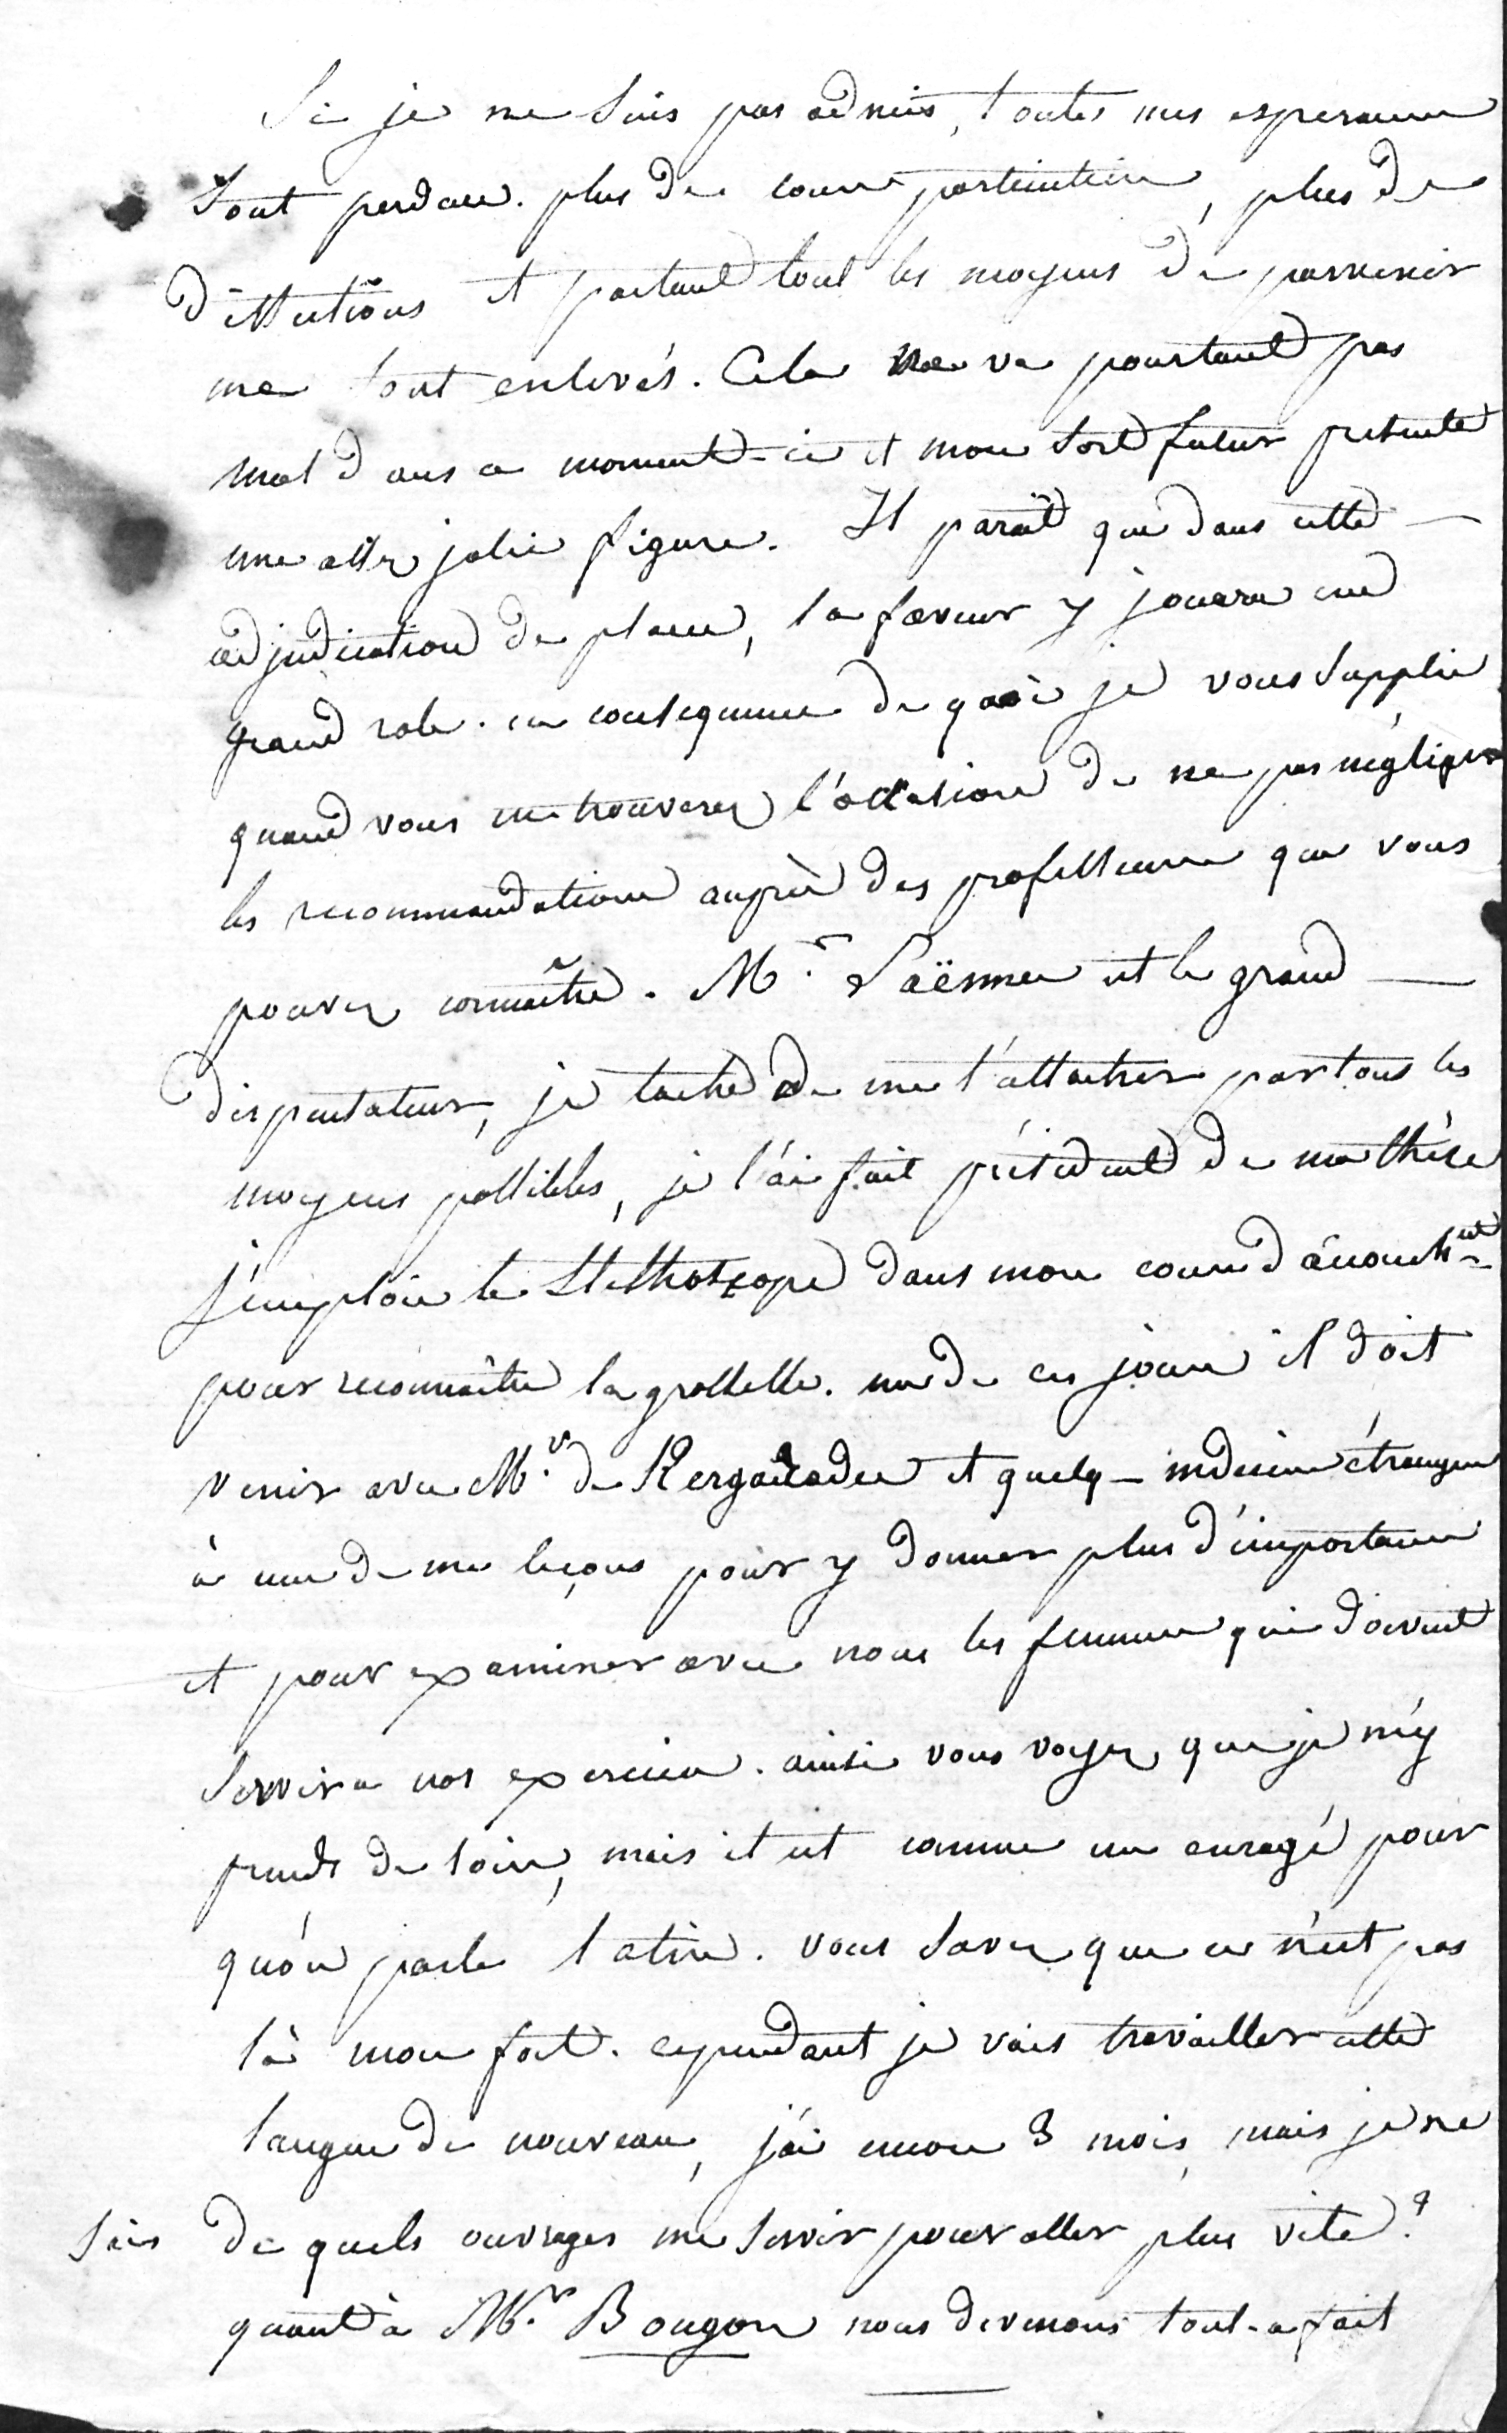 Si je ne suis pas admis, toutes mes esperances
sont perdues. plus de cours particuliers, plus de
dissections et partant tous les moyens de parvenir
me sont enlevés. Cela ne va pourtant pas
mal dans ce moment-ci et mon sort futur présente
une assez jolie figure. Il paraît que dans cette
adjudication de places, la faveur y jouera un
grand role. en consequence de quoi je vous supplie
quand vous en trouverez l'occasion de ne pas négliger
les recommandations auprès des professeurs que vous
pouvez connaître. Mr. Laënnec est le grand
dispensateur, je tache de me l'attacher par tous les
moyens possibles, je l'ai fait président de ma thèse
j'emploie le stethoscope dans mon cours d'accouchmt
pour reconnaître la grossesse. un de ces jours il doit
venir avec Mr. de Kergaradec et quelq- médecins étrangers
à une de mes leçons pour y donner plus d'importance
et pour examiner avec nous les femmes qui doivent
servir a nos exercices. ainsi vous voyez que je m'y
prends de loin, mais il est comme un enragé pour
qu'on parle latin. vous savez que ce n'est pas
là mon fort. cependant je vais travailler cette
langue de nouveau, j'ai encore 3 mois, mais je ne
sais de quels ouvrages me servir pour aller plus vite?
quant à Mr. Bougon nous devenons tout-a fait